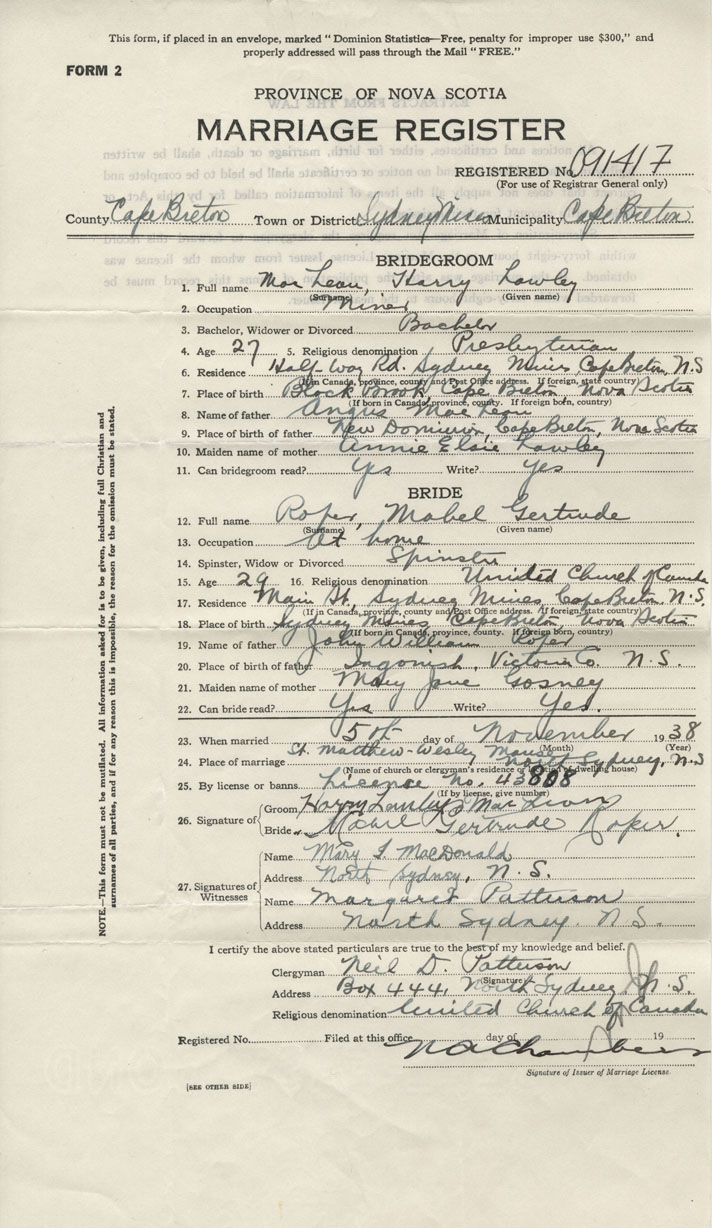 This form, if placed in an envelope, marked "Dominion Statistics—Free, penalty for improper use $300," and
properly addressed will pass through the Mail "FREE."
FORM 2
PROVINCE OF NOVA SCOTIA
MARRIAGE REGISTER
REGISTERED No. 091417
(For use of Registrar General only)
County Cape Breton Town or District Sydney Mines Municipality Cape Breton
BRIDEGROOM
1. Full name MacLean, Harry Lawley
(Surname) (Given name)
2. Occupation Miner
3. Bachelor, Widower or Divorced Bachelor
4. Age 27 5. Religious denomination Presbyterian
6. Residence Half-Way Rd. Sydney Mines Cape Breton, N.S
(If in Canada, province, county and Post Office address. If foreign, state country)
7. Place of birth Black Brook, Cape Breton Nova Scotia
(If born in Canada, province, county. If foreign born, country)
8. Name of father Angus MacLean
9. Place of birth of father New Dominion, Cape Breton, Nova Scotia
10. Maiden name of mother Annie Elsie Lawley
11. Can bridegroom read? Yes Write? Yes
BRIDE
12. Full name Roper, Mabel Gertrude
(Surname) (Given name)
13. Occupation At home
14. Spinster, Widow or Divorced Spinster
15. Age 29 16. Religious denomination United Church of Canada
17. Residence Main St., Sydney Mines, Cape Breton, N.S.
(If in Canada, province, county and Post Office address. If foreign, state country)
18. Place of birth Sydney Mines, Cape Breton, Nova Scotia
(If born in Canada, province, county. If foreign born, country)
19. Name of father John William Roper
20. Place of birth of father Ingonish, Victoria Co. N.S.
21. Maiden name of mother Mary Jane Gosney
22. Can bride read? Yes Write? Yes.
23. When married 5th day of November 1938
(Month) (Year)
24. Place of marriage St. Matthew-Wesley Manse, North Sydney, N.S
(Name of church or clergyman's residence or location of dwelling house)
25. By license or banns License No. 43808
(If by license, give number)
26. Signature of Groom Harry Lawley MacLean
Bride Mabel Gertrude Roper.
27. Signatures of Witnesses
Name Mary I. MacDonald
Address North Sydney, N.S.
Name Margaret Patterson
Address North Sydney. N.S.
I certify the above stated particulars are true to the best of my knowledge and belief.
Clergyman Neil D. Patterson
(Signature)
Address Box 444, North Sydney, N.S.
Religious denomination United Church of Canada
Registered No. Filed at this office day of 19
N A Chambers
Signature of Issuer of Marriage License.
[SEE OTHER SIDE]
NOTE.—This form must not be mutilated. All information asked for is to be given, including full Christian and
surnames of all parties, and if for any reason this is impossible, the reason for the omission must be stated.